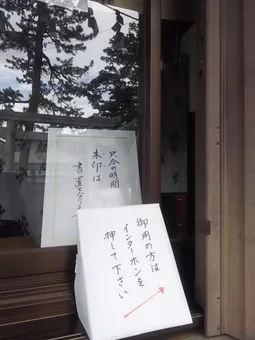 只今の時間
朱印は
書置となります
御用の方は
インターホンを
押して下さい